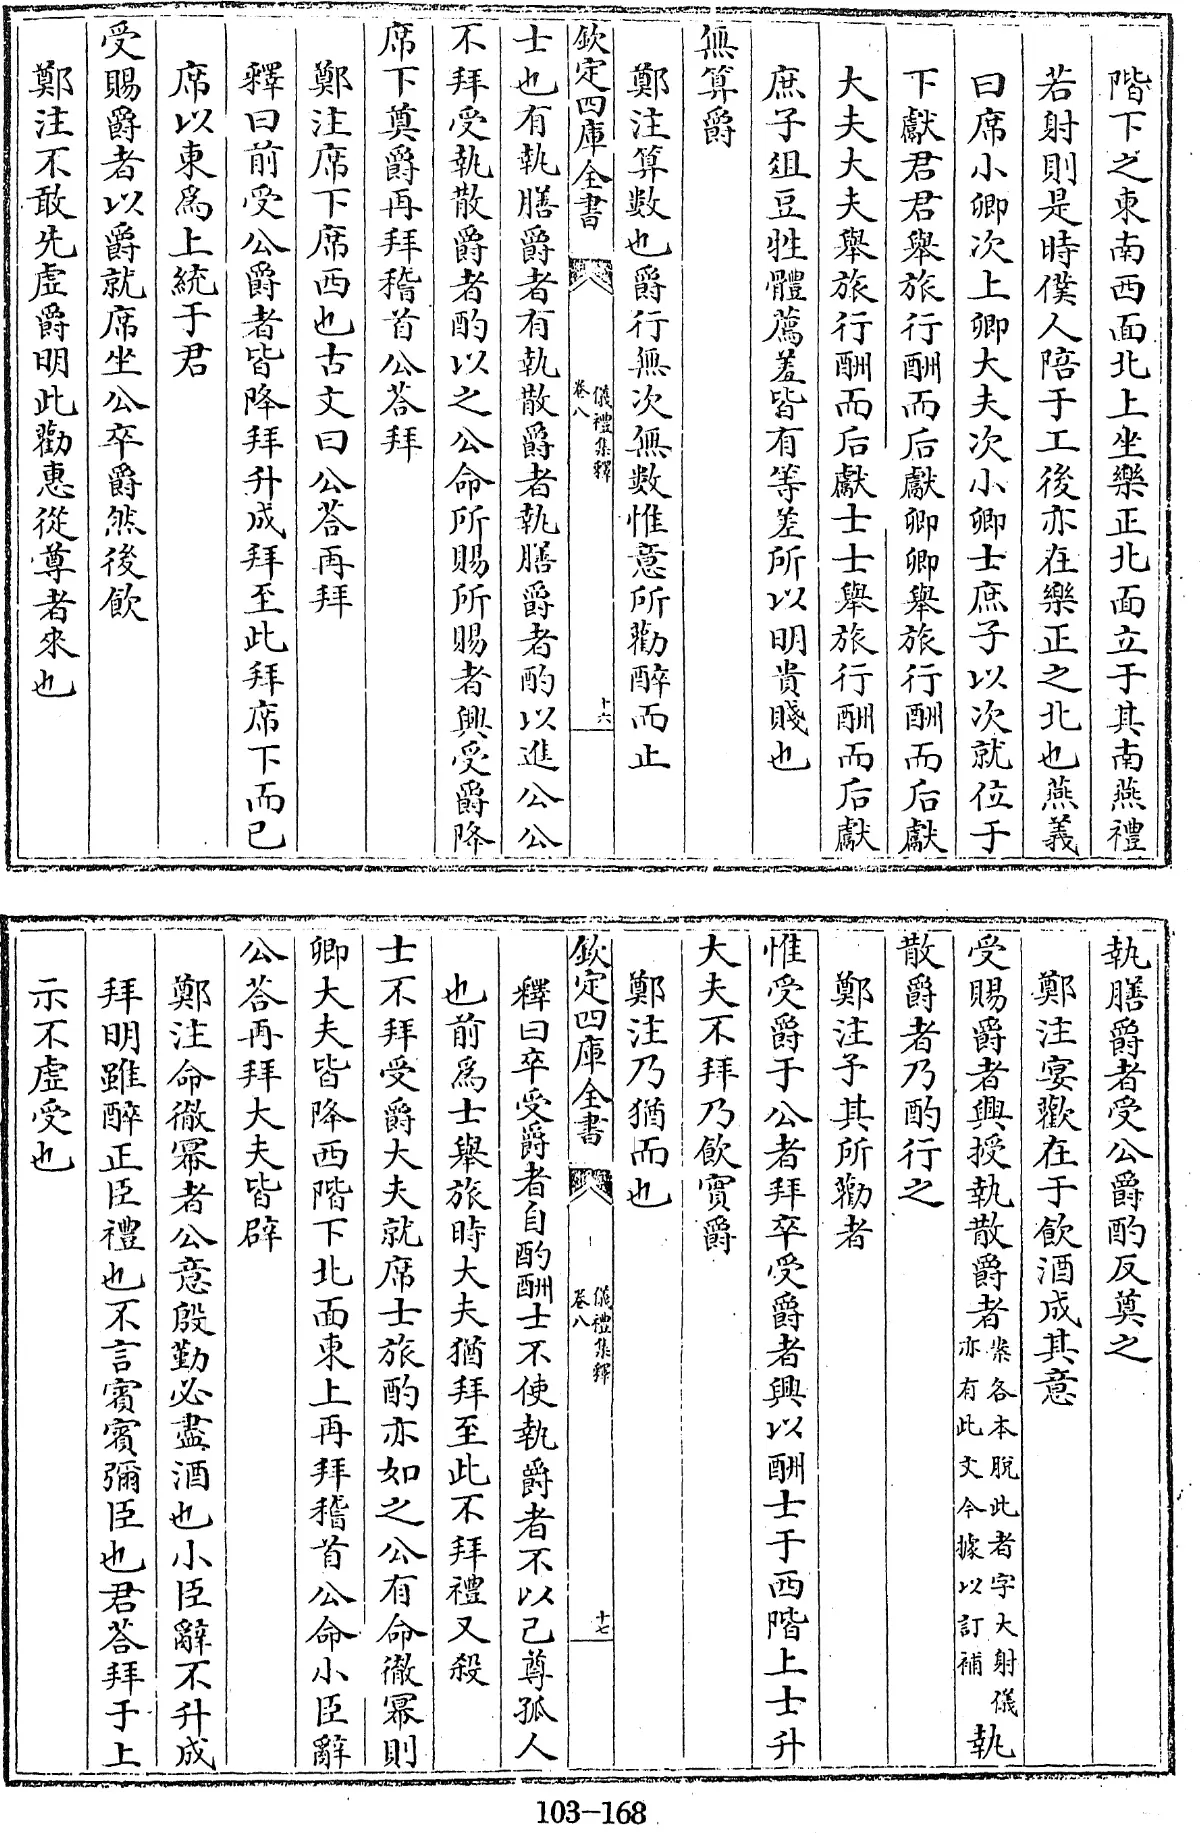 階下之東南西面北上坐樂正北面立于其南燕禮
若射則是時僕人陪于工後亦在樂正之北也燕義
曰席小卿次上卿大夫次小卿士庶子以次就位于
下獻君君舉旅行酬而后獻卿卿舉旅行酬而后獻
大夫大夫舉旅行酬而后獻士士舉旅行酬而后獻
庶子俎豆牲體薦羞皆有等差所以明貴賤也
無算爵
鄭注算數也爵行無次無數惟意所勸醉而止
欽定四庫全書
儀禮集釋
卷八
十六
士也有執膳爵者有執散爵者執膳爵者酌以進公公
不拜受執散爵者酌以之公命所賜所賜者興受爵降
席下奠爵再拜稽首公荅拜
鄭注席下席西也古文曰公荅再拜
釋曰前受公爵者皆降拜升成拜至此拜席下而已
席以東為上統于君
受賜爵者以爵就席坐公卒爵然後飲
鄭注不敢先虛爵明此勸惠從尊者來也
執膳爵者受公爵酌反奠之
鄭注宴歡在于飲酒成其意
受賜爵者興授執散爵者案各本脫此者字大射儀亦有此文今據以訂補執
散爵者乃酌行之
鄭注予其所勸者
惟受爵于公者拜卒受爵者興以酬士于西階上士升
大夫不拜乃飲實爵
鄭注乃猶而也
欽定四庫全書
儀禮集釋
卷八
十七
釋曰卒受爵者自酌酬士不使執爵者不以己尊孤人
也前為士舉旅時大夫猶拜至此不拜禮又殺
士不拜受爵大夫就席士旅酌亦如之公有命徹冪則
卿大夫皆降西階下北面東上再拜稽首公命小臣辭
公荅再拜大夫皆辟
鄭注命徹冪者公意殷勤必盡酒也小臣辭不升成
拜明雖醉正臣禮也不言賓賓彌臣也君荅拜于上
示不虛受也
103-168